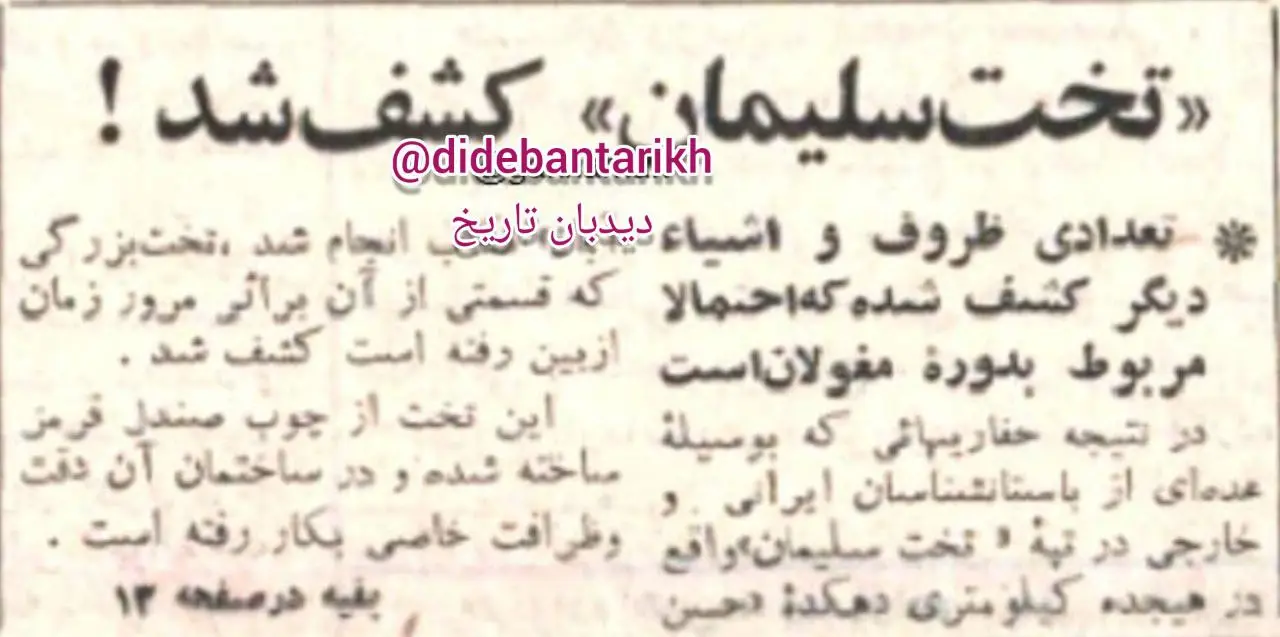 «تخت‌سلیمان» کشف‌شد !
@didebantarikh
دیدبان تاریخ
تعدادی ظروف و اشیاء
دیگر کشف شده که احتمالا
مربوط بدورهٔ مغولان است
در نتیجه حفاریهائی که بوسیلهٔ
عده‌ای از باستانشناسان ایرانی و
خارجی در تپهٔ « تخت سلیمان» واقع
در هیجده کیلومتری دهکدهٔ «حسن
انجام شد ، تخت‌بزرگی
که قسمتی از آن براثر مرور زمان
ازبین رفته است کشف شد .
این تخت از چوب صندل قرمز
ساخته شده و در ساختمان آن دقت
وظرافت خاصی بکار رفته است .
بقیه در صفحه ۱۳